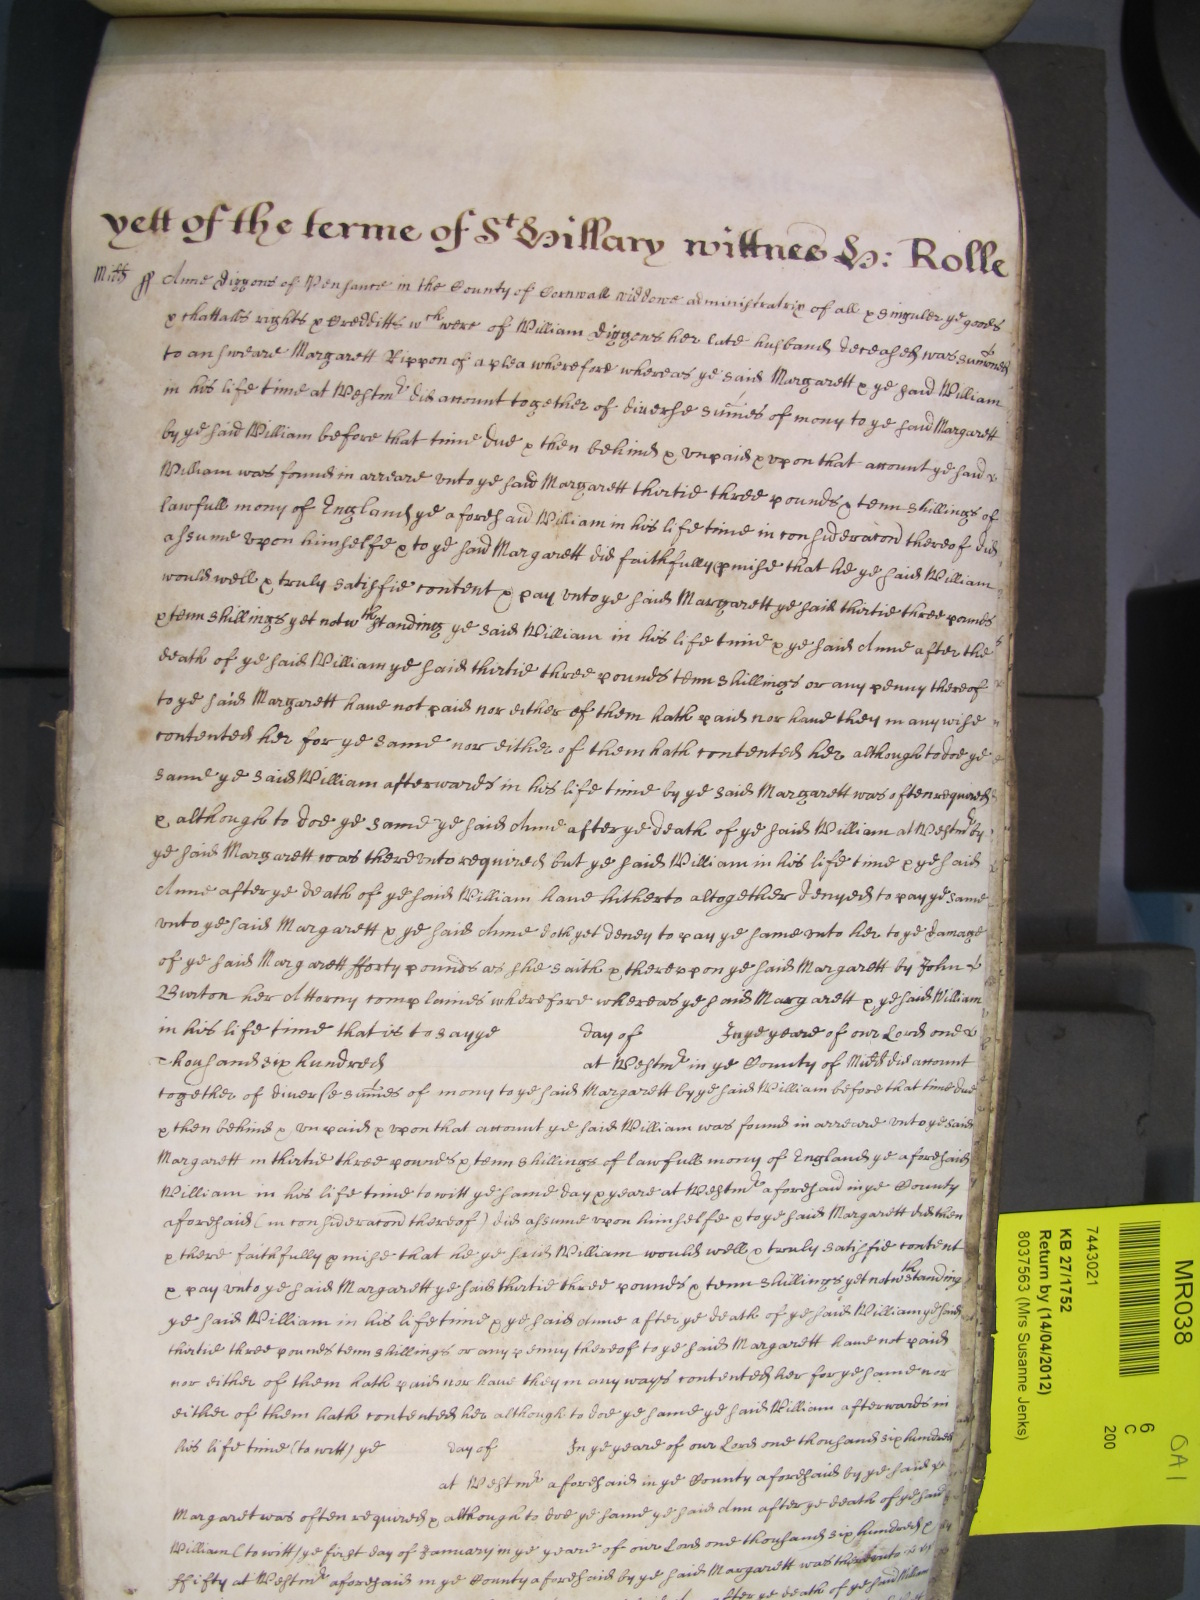 yett of the terme of St Hillary wittnes H: Rolle
Midd ss Anne Diggons of Pensance in the County of Cornwall widdowe administratrix of all & singuler ye goods
& chattalls rights & Creditts wch were of William Diggons her late husband deceased was sumoned
to answeare Margarett Rippon of a plea wherefore whereas ye said Margarett & ye said William
in his life time at Westmr did account together of diverse sumes of mony to ye said Margarett
by ye said William before that time due & then behind & vnpaid & vpon that account ye said
William was found in arreare vnto ye said Margarett thirtie three pounds & tenn shillings of
lawfull mony of England ye aforesaid William in his life time in consideracon thereof did
assume vpon himselfe & to ye said Margarett did faithfully pmise that he ye said William
would well & truly satisfie content & pay vnto ye said Margarett ye said thirtie three pounds
& tenn shillings yet notwthstanding ye said William in his life time & ye said Anne after the
death of ye said William ye said thirtie three pounds tenn shillings or any penny thereof
to ye said Margarett haue not paid nor either of them hath paid nor haue they in any wise
contented her for ye same nor either of them hath contented her although to doe ye
same ye said William afterwards in his life time by ye said Margarett was often required
& although to doe ye same ye said Anne after ye death of ye said William at Westmr by
ye said Margarett was therevnto required but ye said William in his life time & ye said
Anne after ye death of ye said William haue hitherto altogether denyed to pay ye same
vnto ye said Margarett & ye said Anne doth yet deney to pay ye same vnto her to ye damage
of ye said Margarett fforty pounds as she saith & therevpon ye said Margarett by John
Burton her Attorny complaines wherefore whereas ye said Margarett & ye said William
in his life time that is to say ye day of In ye yeare of our Lord one
Thousand six hundred at Westmr in ye County of Midd did account
together of diverse sumes of mony to ye said Margarett by ye said William before that time due
& then behind & vnpaid & vpon that account ye said William was found in arreare vnto ye said
Margarett in thirtie three pounds & tenn shillings of lawfull mony of England ye aforesaid
William in his life time to witt ye same day & yeare at Westmr aforesaid in ye County
aforesaid (in consideracon thereof) did assume vpon himselfe & to ye said Margarett did then
& there faithfully pmise that he ye said William would well & truly satisfie content
& pay vnto ye said Margarett ye said thirtie three pounds & tenn shillings yet notwthstanding
ye said William in his life time & ye said Anne after ye death of ye said William ye said
thirtie three pounds tenn shillings or any penny thereof to ye said Margarett haue not paid
nor either of them hath paid nor haue they in any ways contented her for ye same nor
either of them hath contented her although to doe ye same ye said William afterwards in
his life time (to witt) ye day of In ye yeare of our Lord one thousand six hundred
at Westmr aforesaid in ye County aforesaid by ye said
Margaret was often required & although to doe ye same ye said Ann after ye death of ye said
William (to witt) ye first day of January in ye yeare of our Lord one thousand six hundred &
ffifty at Westmr aforesaid in ye County aforesaid by ye said Margarett was therevnto
after ye death of ye said William
MR038
7443021
KB 27/1752
Return by (14/04/2012)
8037563 (Mrs Susanne Jenks)
6
C
200
OA1